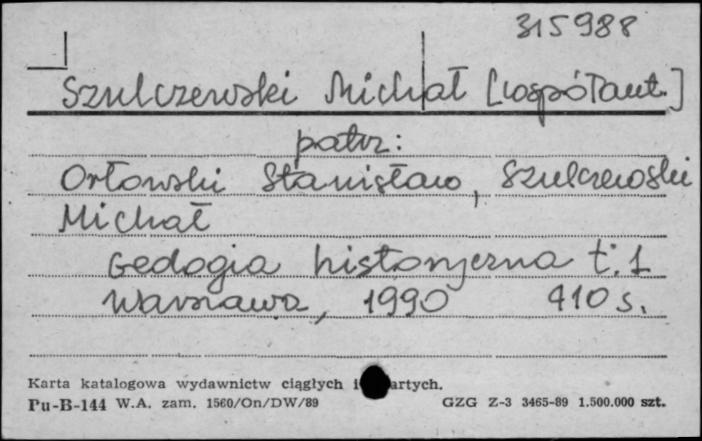 315988
Szulczewski Michał [współaut.]
patrz:
Orłowski Stanisław, Szulczewski
Michał
Geologia historyczna t. 1
Warszawa, 1990 410 s.
Karta katalogowa wydawnictw ciągłych i artych.
Pu-B-144 W.A. zam. 1560/On/DW/89 GZG Z-3 3465-89 1.500.000 szt.